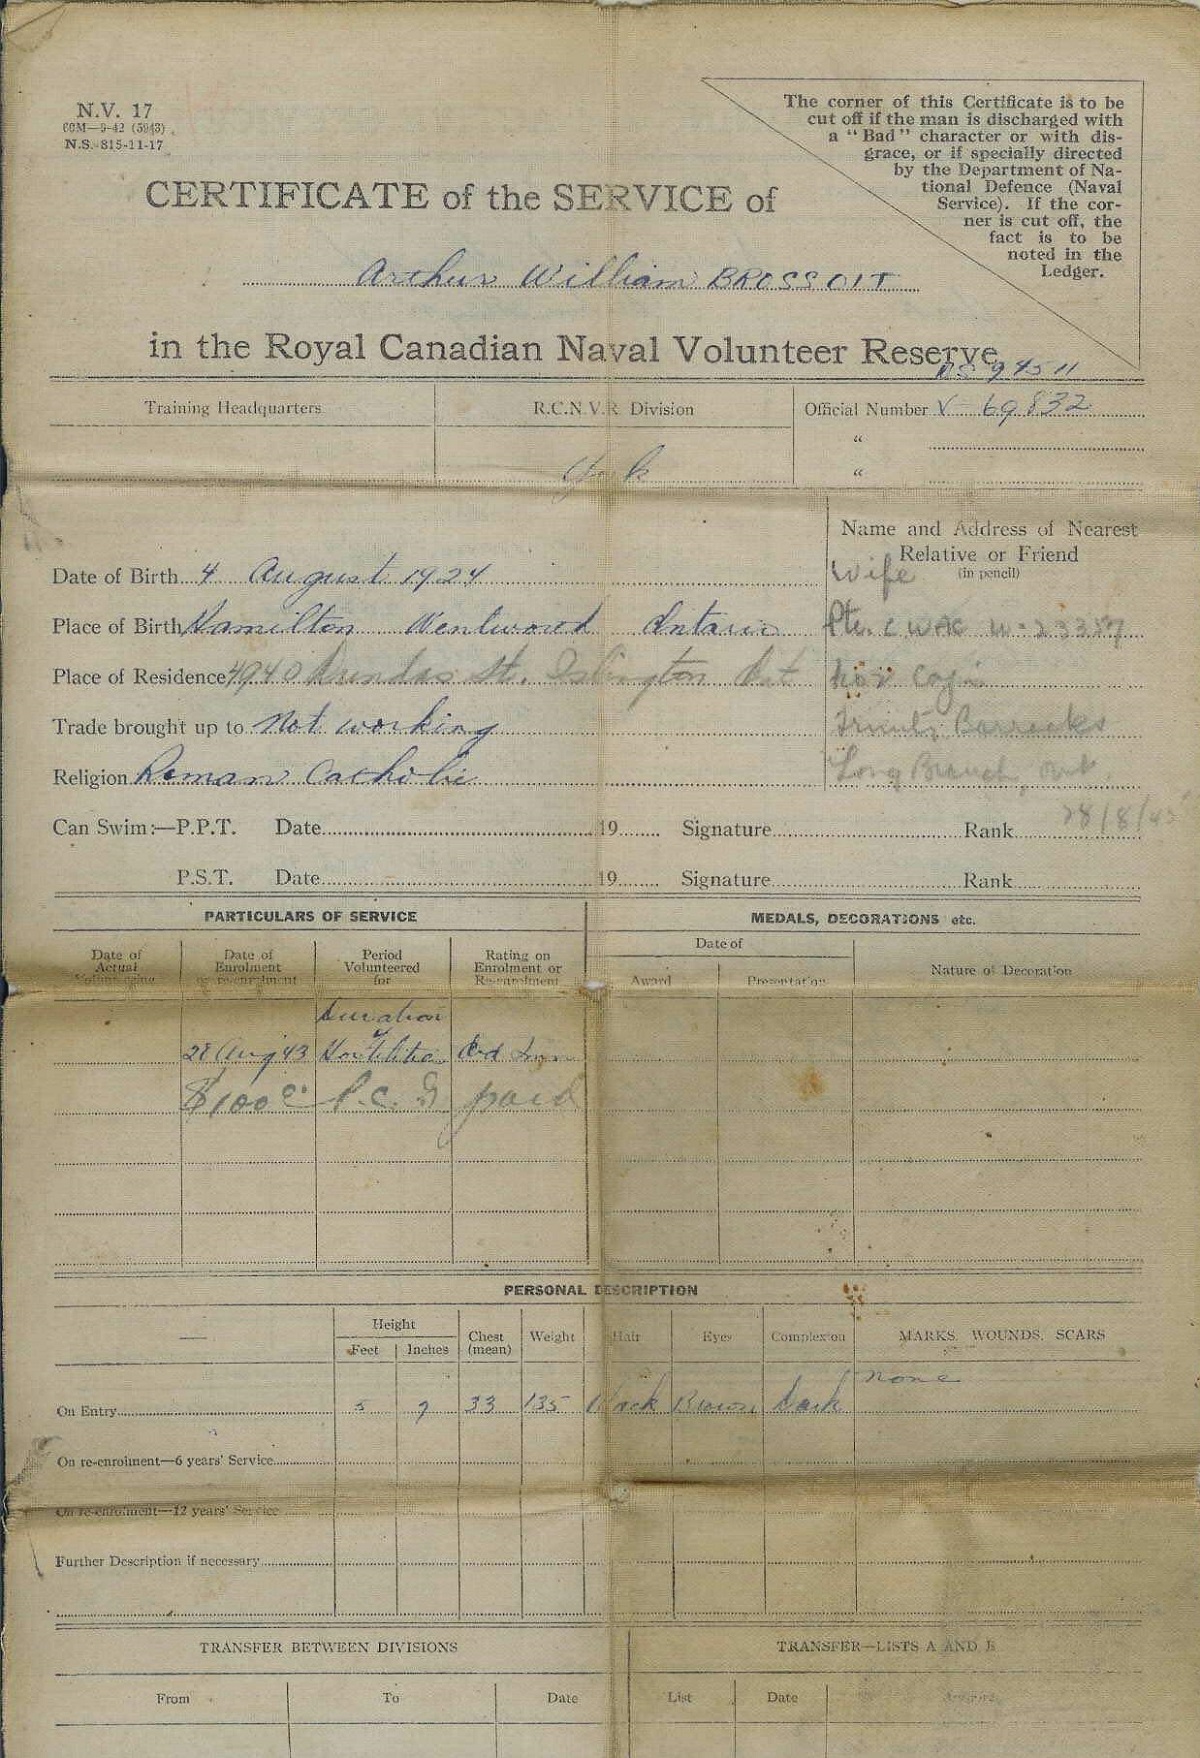 N.V. 17
60M—9-42 (5943)
N.S. 815-11-17
The corner of this Certificate is to be
cut off if the man is discharged with
a "Bad" character or with dis-
grace, or if specially directed
by the Department of Na-
tional Defence (Naval
Service). If the cor-
ner is cut off, the
fact is to be
noted in the
Ledger.
CERTIFICATE of the SERVICE of
Arthur William BROSSOIT
in the Royal Canadian Naval Volunteer Reserve
Training Headquarters
R.C.N.V.R. Division
Official Number V 69832
"
"
York
Name and Address of Nearest
Relative or Friend
(in pencil)
Wife
Date of Birth 4 August 1924
Place of Birth Hamilton Wentword Ontario
Pte. CWAC W-23357
Place of Residence 4940 Dundas St. Islington Ont
Trade brought up to Not working
Trinity Barracks
Religion Roman Catholic
Long Branch, Ont
28/8/45
Can Swim:—P.P.T. Date 19 Signature Rank
P.S.T. Date 19 Signature Rank
PARTICULARS OF SERVICE
MEDALS, DECORATIONS etc.
Date of Actual Volunteering
Date of Enrolment or re-enrolment
Period Volunteered for
Rating on Enrolment or Re-enrolment
Date of
Award
Presentation
Nature of Decoration
Duration
28 Aug 43 Hostilities Ord
$100 P.C. paid
PERSONAL DESCRIPTION
Height
Feet Inches
Chest (mean)
Weight
Hair
Eyes
Complexion
MARKS, WOUNDS, SCARS
none
On Entry 5 7 33 135 Black Brown Dark
On re-enrolment—6 years' Service
On re-enrolment—12 years' Service
Further Description if necessary
TRANSFER BETWEEN DIVISIONS
TRANSFER—LISTS A AND B
From To Date List Date